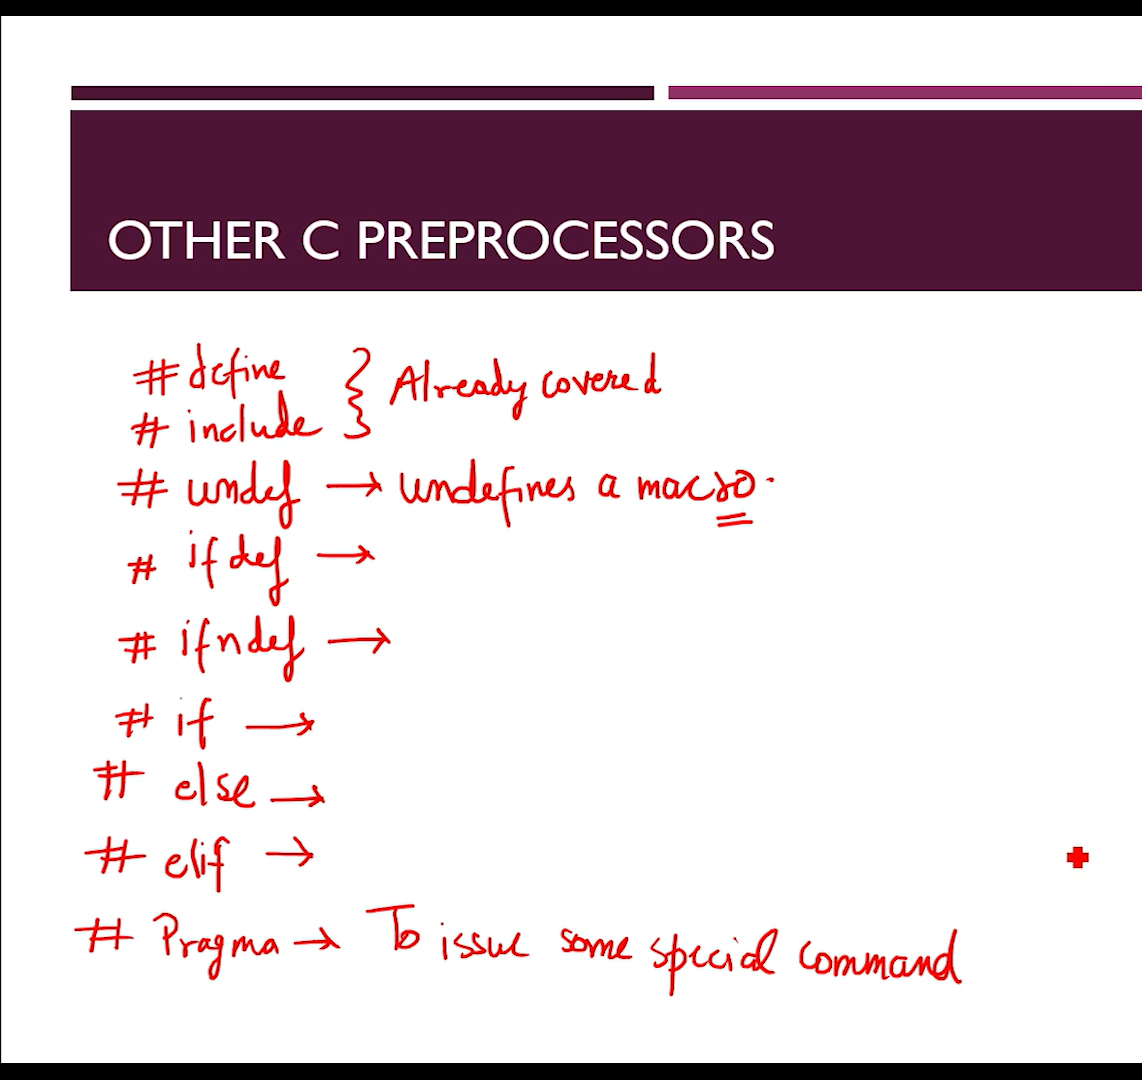 OTHER C PREPROCESSORS
# define } Already covered
# include
# undef → undefines a macro.
# ifdef →
# ifndef →
# if →
# else →
# elif →
# Pragma → To issue some special command